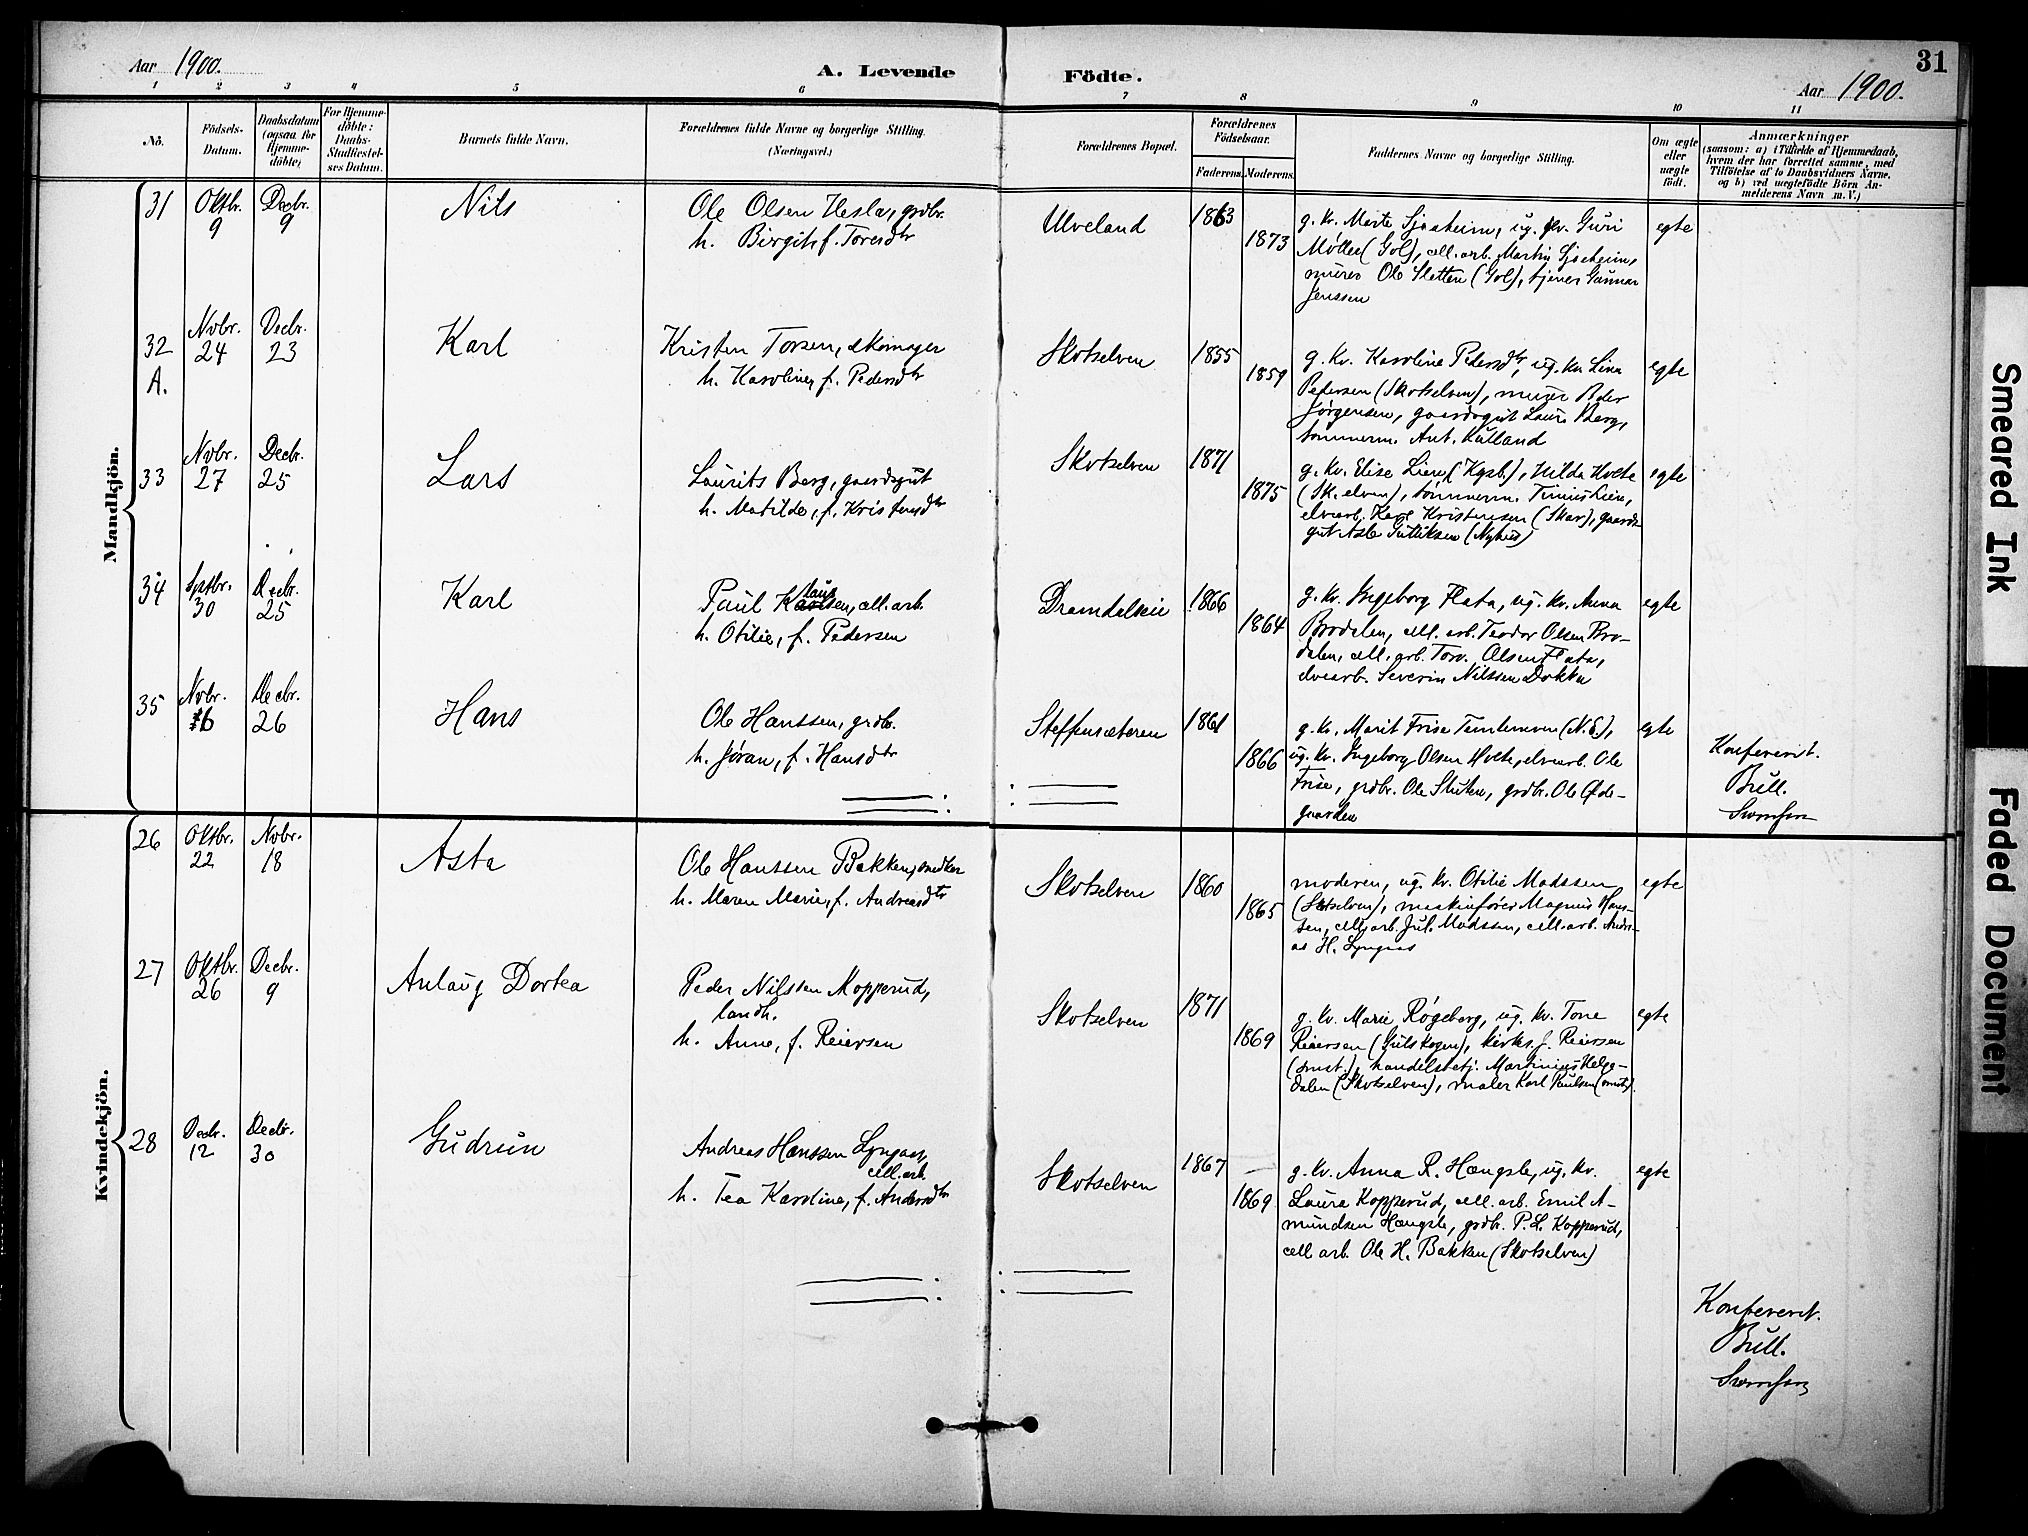 Aar 1900.
A. Levende
Födte.
31
Aar 1900.
1 2 3 4 5 6 7 8 9 10 11
No.
Födsels-
Datum.
Daabsdatum
(ogsaa for
Hjemme-
döbte).
For Hjemme-
döbte:
Daabs-
Stadfæstel-
ses Datum.
Barnets fulde Navn.
Forældrenes fulde Navne og borgerlige Stilling.
(Næringsvei.)
Forældrenes Bopæl.
Forældrenes
Födselsaar.
Faderens. Moderens.
Faddernes Navne og borgerlige Stilling.
Om ægte
eller
uægte
födt.
Anmærkninger
(saasom: a) i Tilfælde af Hjemmedaab,
hvem der har forrettet samme, med
Tilföielse af to Daabsvidners Navne.
og b) ved uægtefödte Börn An-
melderens Navn m. V.)
Mandkjön.
31 Oktbr. 9 Decbr. 9 Nils
Ole Olsen Hesla, grdbr.
h. Birgit f. Toresdtr
Ulveland 1863 1873
g. kv. Marte Sjaaheim, ug. kv. Guri
Møller (Gol), cell. arb. Martin Sjaaheim,
murer Ole Sletten (Gol), tjener Gunnar
Jenssen
egte
32 A. Nvbr. 24 Decbr. 23 Karl
Kristen Torsen, skomager
h. Karoline, f. Pedersdtr
Skotselven 1855 1859
g. kv. Karoline Pedersdtr, ug. kv. Lina
Pedersen (Skotselven), murer Peder
Jørgensen, gaardsgut Laur. Berg,
tømmerm. Ant. Kulland
egte
33 Nvbr. 27 Decbr. 25 Lars
Laurits Berg, gaardsgut
h. Matilde, f. Kristensdtr
Skotselven 1871 1875
g. kv. Elise Lien (Kgsb.), Hilda Holte
(Sk.elven), tømmerm. Tinius Lien,
elvearb. Karl Kristensen (Skar), gaards-
gut Asle Gulliksen (Nyhus)
egte
34 Sptbr. 30 Decbr. 25 Karl
Paul Klausen, cell. arb.
h. Otilie, f. Pedersen
Dramdalseie 1866 1864
g. kv. Ingeborg Flata, ug. kv. Anna
Brodalen, cell. arb. Teodor Olsen Bro-
dalen, cell. arb. Torv. Olsen Flata,
elvearb. Severin Nilssen Dokka
egte
35 Nvbr. 16 Decbr. 26 Hans
Ole Hanssen, grdb.
h. Jøran, f. Hansdtr
Steffensæteren 1861 1866
g. kv. Marit Frise Temlemoen (N.E.),
ug. kv. Ingeborg Olsen Holte, elvearb. Ole
Frise, grdbr. Ole Stuten, grdbr. Ole Øde-
gaarden
egte
Konfereret.
Bull.
Kvindekjön.
26 Oktbr. 22 Nvbr. 18 Asta
Ole Hanssen Bakken, snedker
h. Maren Marie, f. Andreasdtr
Skotselven 1860 1865
moderen, ug. kv. Otilie Madssen
(Skotselven), maskinfører Magnus Hans-
sen, cell. arb. Jul. Madssen, cell. arb. Andre-
as H. Lyngaas
egte
27 Oktbr. 26 Decbr. 9 Anlaug Dortea
Peder Nilssen Kopperud,
landh.
h. Anne, f. Reiersen
Skotselven 1871 1869
g. kv. Marie Røgeberg, ug. kv. Tone
Reiersen (Gulskogen), kirks. J. Reiersen
(smst.), handelsbetj. Martinius Helge-
dalen (Skotselven), maler Karl Paulsen (smsts).
egte
28 Decbr. 12 Decbr. 30 Gudrun
Andreas Hanssen Lyngaas,
cell. arb.
h. Tea Karoline, f. Andersdtr
Skotselven 1867 1869
g. kv. Anna R. Hængsle, ug. kv.
Laura Kopperud, cell. arb. Emil A-
mundsen Hængsle, grdb. P. L. Kopperud,
cell. arb. Ole H. Bakken (Skotselven)
egte
Konfereret.
Bull.
Smeared Ink
Faded Document